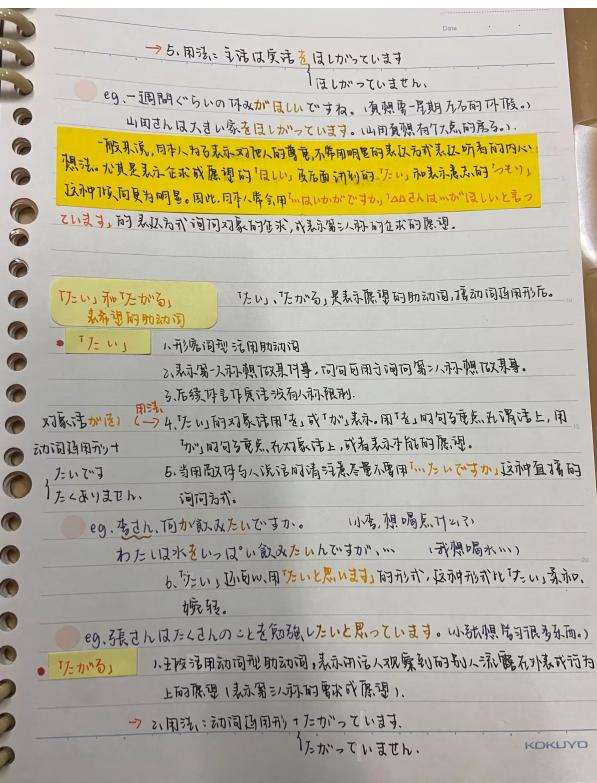 Date
→ 5、用法: 主语は宾语をほしがっています
ほしがっていません.
eg.一週間ぐらいの休みがほしいですね。(真想要一星期左右的休假。)
山田さんは大きい家をほしがっています。(山田真想有个大点的房子。).
一般来说,日本人为了表示对他人的尊重,不常用明显的表达方式表达听者的内心
想法。尤其是表示企求或愿望的「ほしい」及后面讲到的「たい」和表示意志的「つもり」
这种倾向更为明显。因此,日本人常会用「…はいかがですか」「△△さんは…がほしいと言っ
ています」的表达方式询问对象的企求,或表示第三人称的企求的愿望.
「たい」和「たがる」
「たい」、「たがる」是表示愿望的助动词,接动词连用形后。
表希望的助动词
「たい」
1.形容词型活用助动词
2、表示第一人称想做某件事,问句可用于询问第二人称想做某事。
3、后续体言作定语没有人称限制.
对象语が(を)
用法:
4、「たい」的对象语用「を」或「が」表示。用「を」的句子重点在谓语上,用
动词连用形+
「が」的句子重点在对象语上,或者表示本能的愿望.
たいです
5、当用敬体与人说话的请注意尽量不要用「…たいですか」这种直接的
たくありません.
询问方式。
eg.李さん、何か飲みたいですか。 (小李,想喝点什么?)
わたしは水をいっぱい飲みたいんですが,… (我想喝水…)
6、「たい」还可以用「たいと思います」的形式,这种形式比「たい」柔和、
婉转。
eg.張さんはたくさんのことを勉強したいと思っています。(小张想学习很多东西。)
「たがる」
1、五段活用动词型助动词,表示听话人观察到的别人流露在外表或行为
上的愿望(表示第三人称的要求或愿望).
→ 2、用法:动词连用形+たがっています.
たがっていません.
KOKUYO